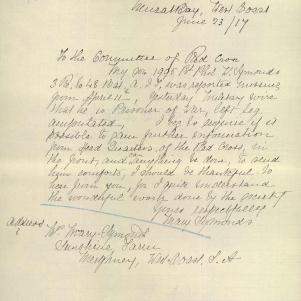 West Coast
June 23/17
To the Committee of Red Cross
My son 1995 Pt Phil. L. Symonds
3. R. to 48 Batt. A.I.F. was reported missing
from April 11th, yesterday Military wire
that he is Prisoner of War, left leg
amputated. I beg to inquire if it
possible to gain further information
from Head Quarters, of the Red Cross, in
the front, and can anything be done, to send
him comforts, I should be thankful to
hear from you, for I quite understand
the wonderful work done by the Society
Yours respectfully
Mary Symonds
Address Mrs Mary Symonds
Sunshine Farm
West Coast, S.A